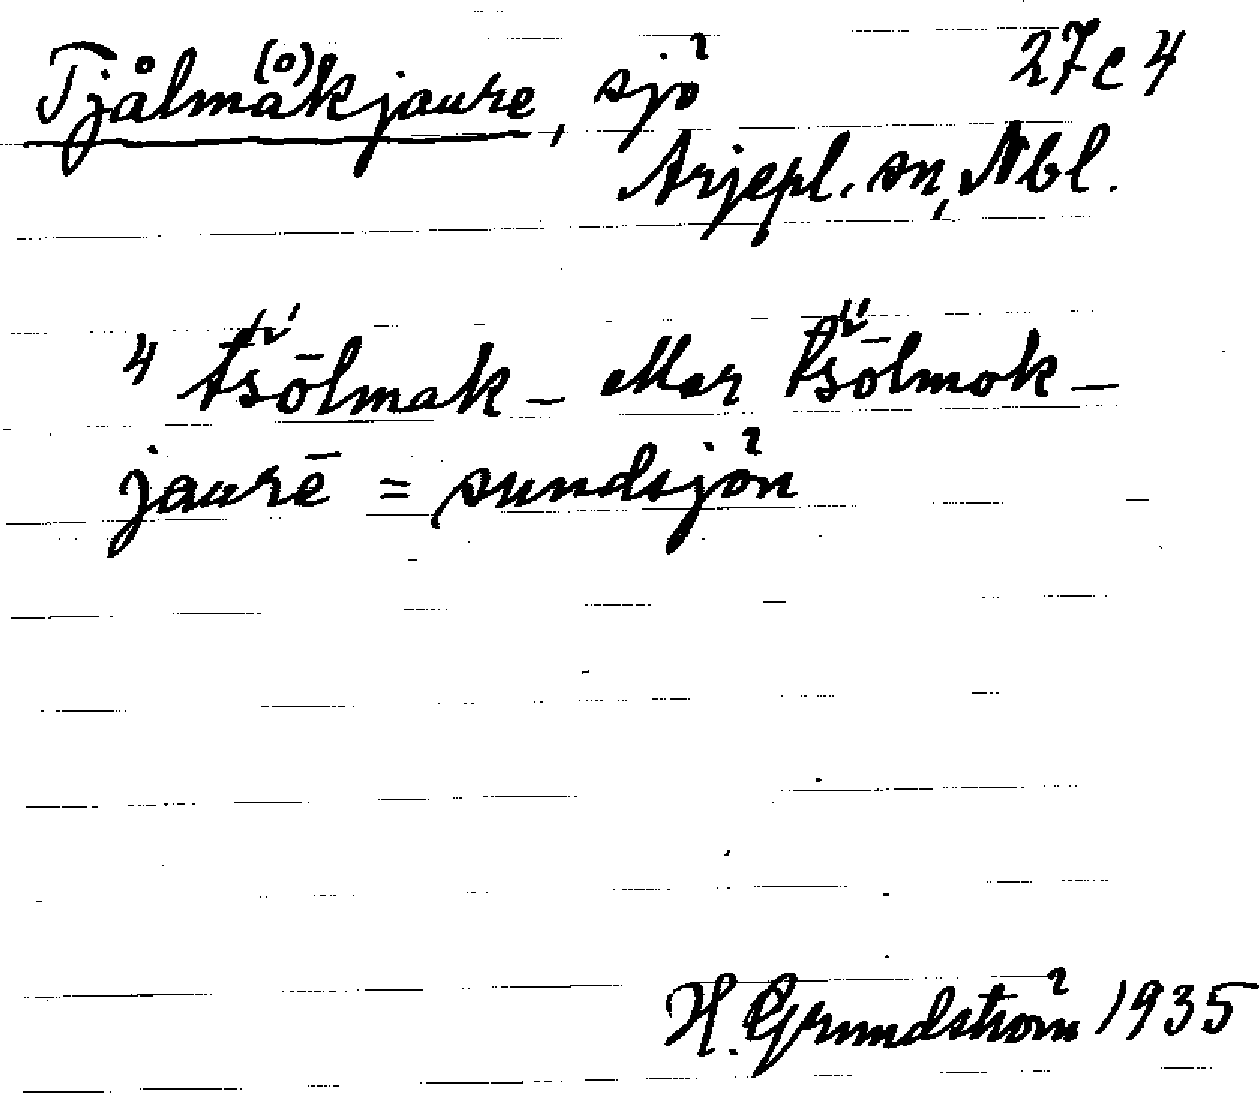 Tjålmå(o)kjaure, sjö 27c4
Arjepl. sn, Nbl.
4 tšōlmak- eller tšōlmok-
jaurē = sundsjön
H. Grundström 1935